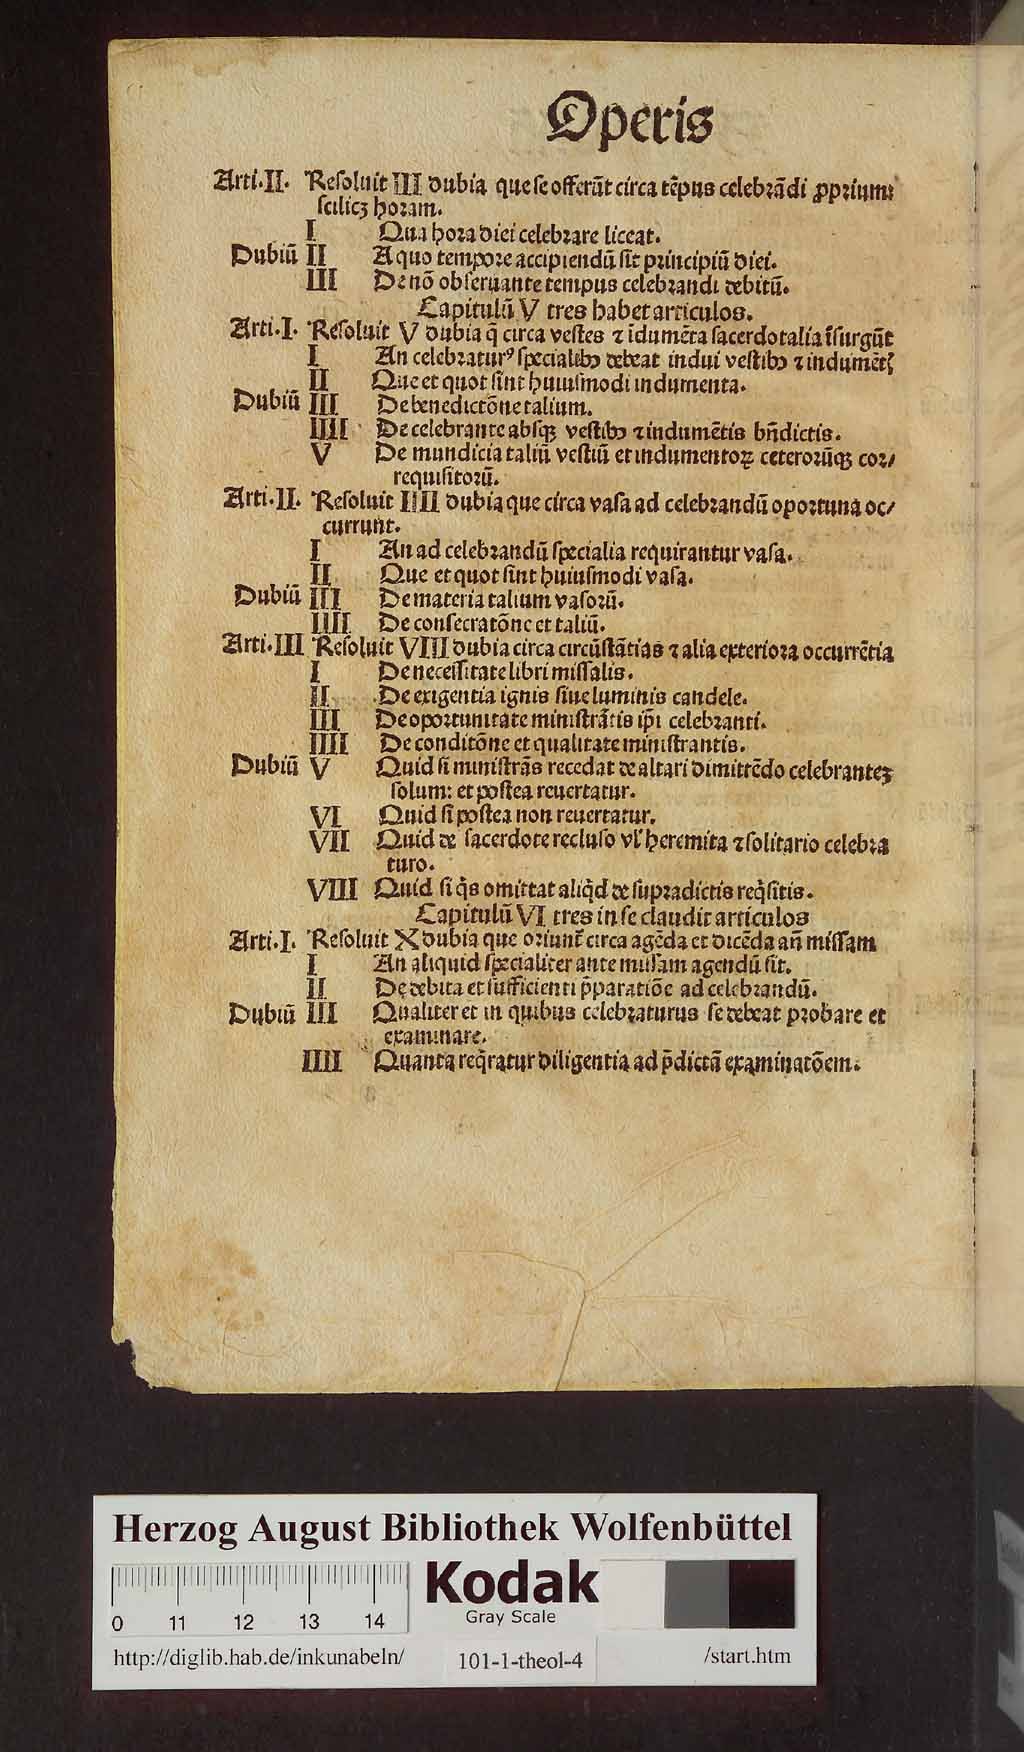 Operis
Arti.II. Resoluit III dubia que se offerūt circa tēpus celebrādi ꝓprium:
scilicꝫ horam.
I Qua hora diei celebrare liceat.
Dubiū II A quo tempore accipiendū sit principiū diei.
III De nō obseruante tempus celebrandi debitū.
Capitulū V tres habet articulos.
Arti.I. Resoluit V dubia q̄ circa vestes ⁊ īdumēta sacerdotalia īsurgūt
I An celebraturꝰ specialibꝰ debeat indui vestibꝰ ⁊ indumētꝭ
II Que et quot sint huiusmodi indumenta.
Dubiū III De benedictōne talium.
IIII De celebrante absqꝫ vestibꝰ ⁊ indumētis bn̄dictis.
V De mundicia taliū vestiū et indumentoꝝ ceterorūqꝫ cor⸗
requisitorū.
Arti.II. Resoluit IIII dubia que circa vasa ad celebrandū oportuna oc⸗
currunt.
I An ad celebrandū specialia requirantur vasa.
II Que et quot sint huiusmodi vasa.
Dubiū III De materia talium vasorū.
IIII De consecratōne et taliū.
Arti.III Resoluit VIII dubia circa circūstātias ⁊ alia exteriora occurrētia
I De necessitate libri missalis.
II De exigentia ignis siue luminis candele.
III De oportunitate ministrātis ip̄i celebranti.
IIII De conditōne et qualitate ministrantis.
Dubiū V Quid si ministrās recedat de altari dimittēdo celebranteꝫ
solum: et postea reuertatur.
VI Quid si postea non reuertatur.
VII Quid de sacerdote recluso vl' heremita ⁊ solitario celebra
turo.
VIII Quid si q̄s omittat aliq̄d de supradictis req̄sitis.
Capitulū VI tres in se claudit articulos
Arti.I. Resoluit X dubia que oriunt̄ circa agēda et dicēda an̄ missam
I An aliquid specialiter ante missam agendū sit.
II De debita et sufficienti p̄paratiōe ad celebrandū.
Dubiū III Qualiter et in quibus celebraturus se debeat probare et
examinare.
IIII Quanta req̄ratur diligentia ad p̄dictā examinatōem.
Herzog August Bibliothek Wolfenbüttel
Kodak
Gray Scale
0 11 12 13 14
http://diglib.hab.de/inkunabeln/ 101-1-theol-4 /start.htm